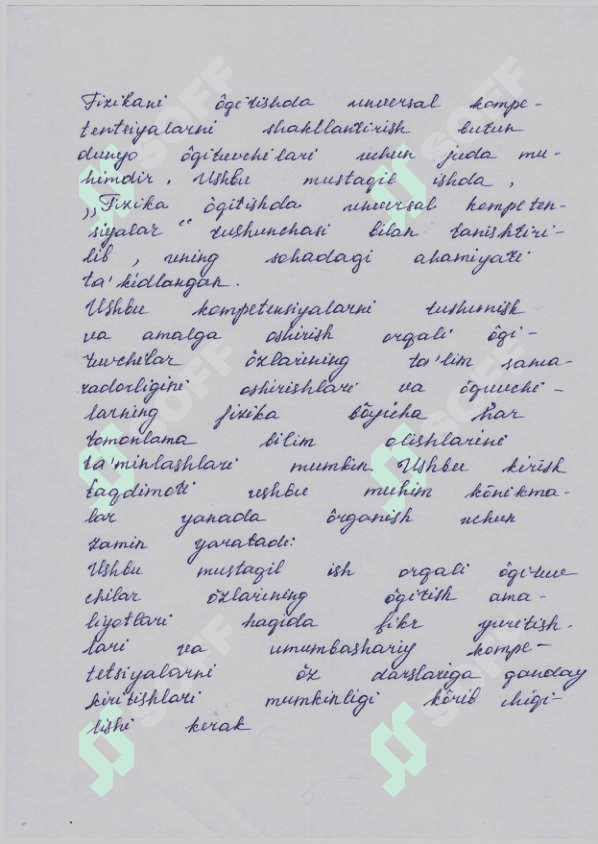 Fizikani ôqitishda universal kompe-
tentsiyalarni shakllantirish butun
dunyo ôqituvchilari uchun juda mu-
himdir. Ushbu mustaqil ishda,
,,Fizika ôqitishda universal kompeten-
siyalar" tushunchasi bilan tanishtiri-
lib, uning sohadagi ahamiyati
ta'kidlangan.
Ushbu kompetensiyalarni tushunish
va amalga oshirish orqali ôqi-
tuvchilar ôzlarining ta'lim sama-
radorligini oshirishlari va ôquvchi-
larning fizika bôyicha har
tomonlama bilim olishlarini
ta'minlashlari mumkin. Ushbu kirish
taqdimoti ushbu muhim kônikma-
lar yanada ôrganish uchun
zamin yaratadi:
Ushbu mustaqil ish orqali ôqituv
chilar ôzlarining ôqitish ama-
liyotlari haqida fikr yuritish.
lari va umumbashariy kompe-
tetsiyalarni ôz darslariga qanday
kiritishlari mumkinligi kôrib chiqi-
lishi kerak
SOFF
SOFF
SOFF
SOFF
SOFF
SOFF